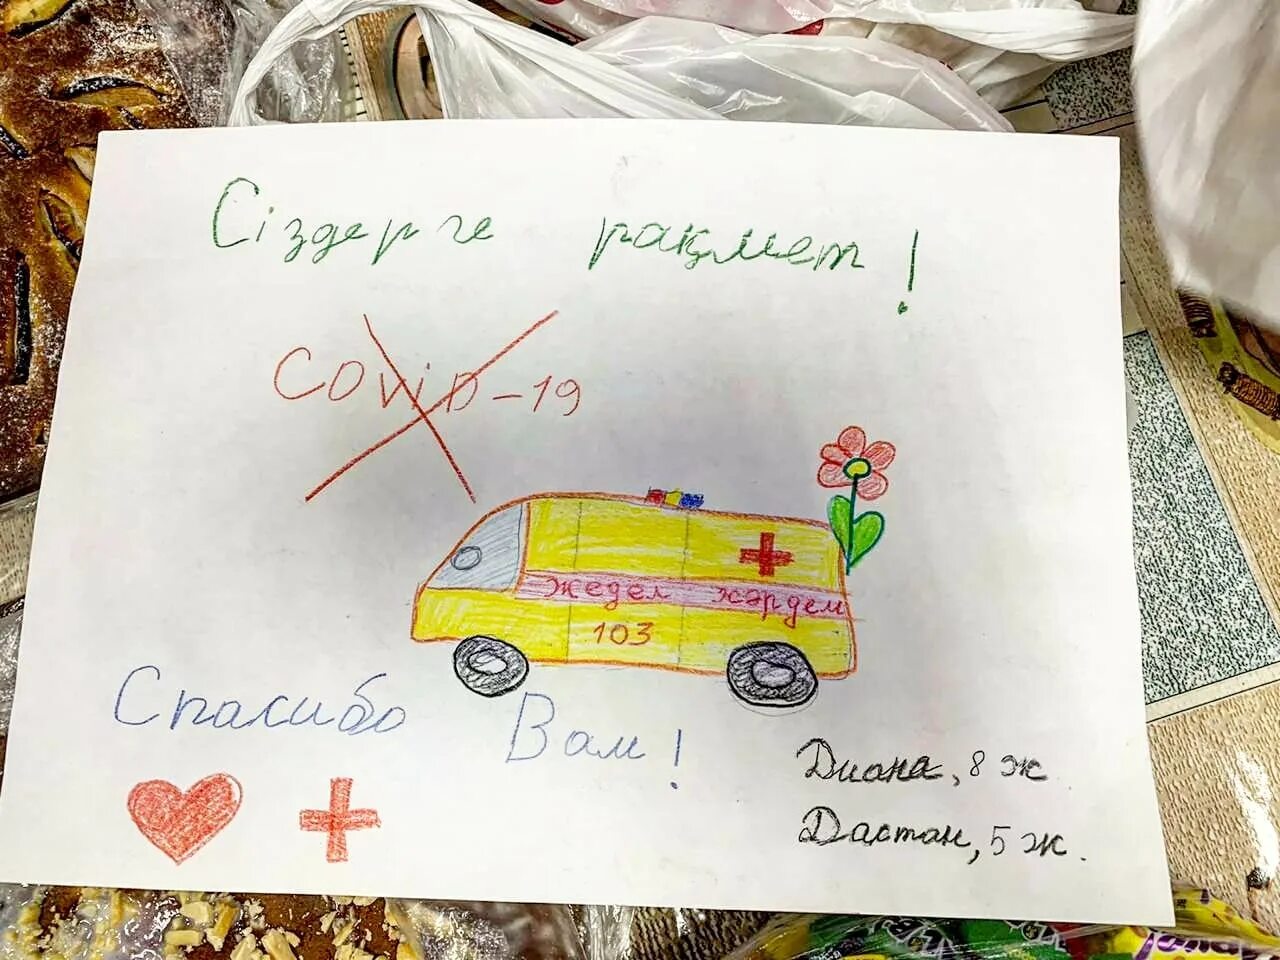 Сіздерге рақмет!
COViD-19
Жедел жәрдем
103
Спасибо Вам!
Диана, 8 ж
Дастан, 5 ж.